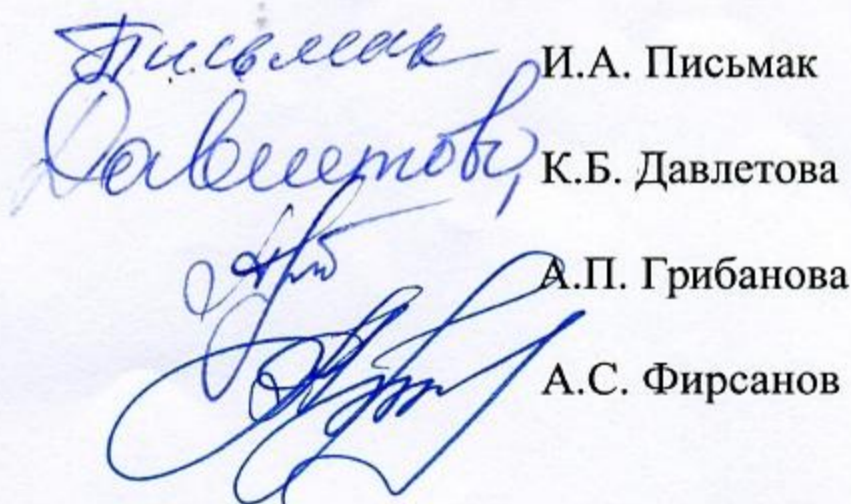 Письмак И.А. Письмак
Давлетова К.Б. Давлетова
А.П. Грибанова
А.С. Фирсанов